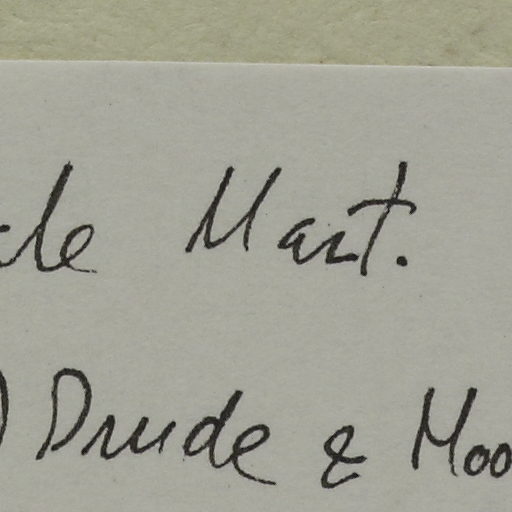 le Mart.
) Drude & Moo